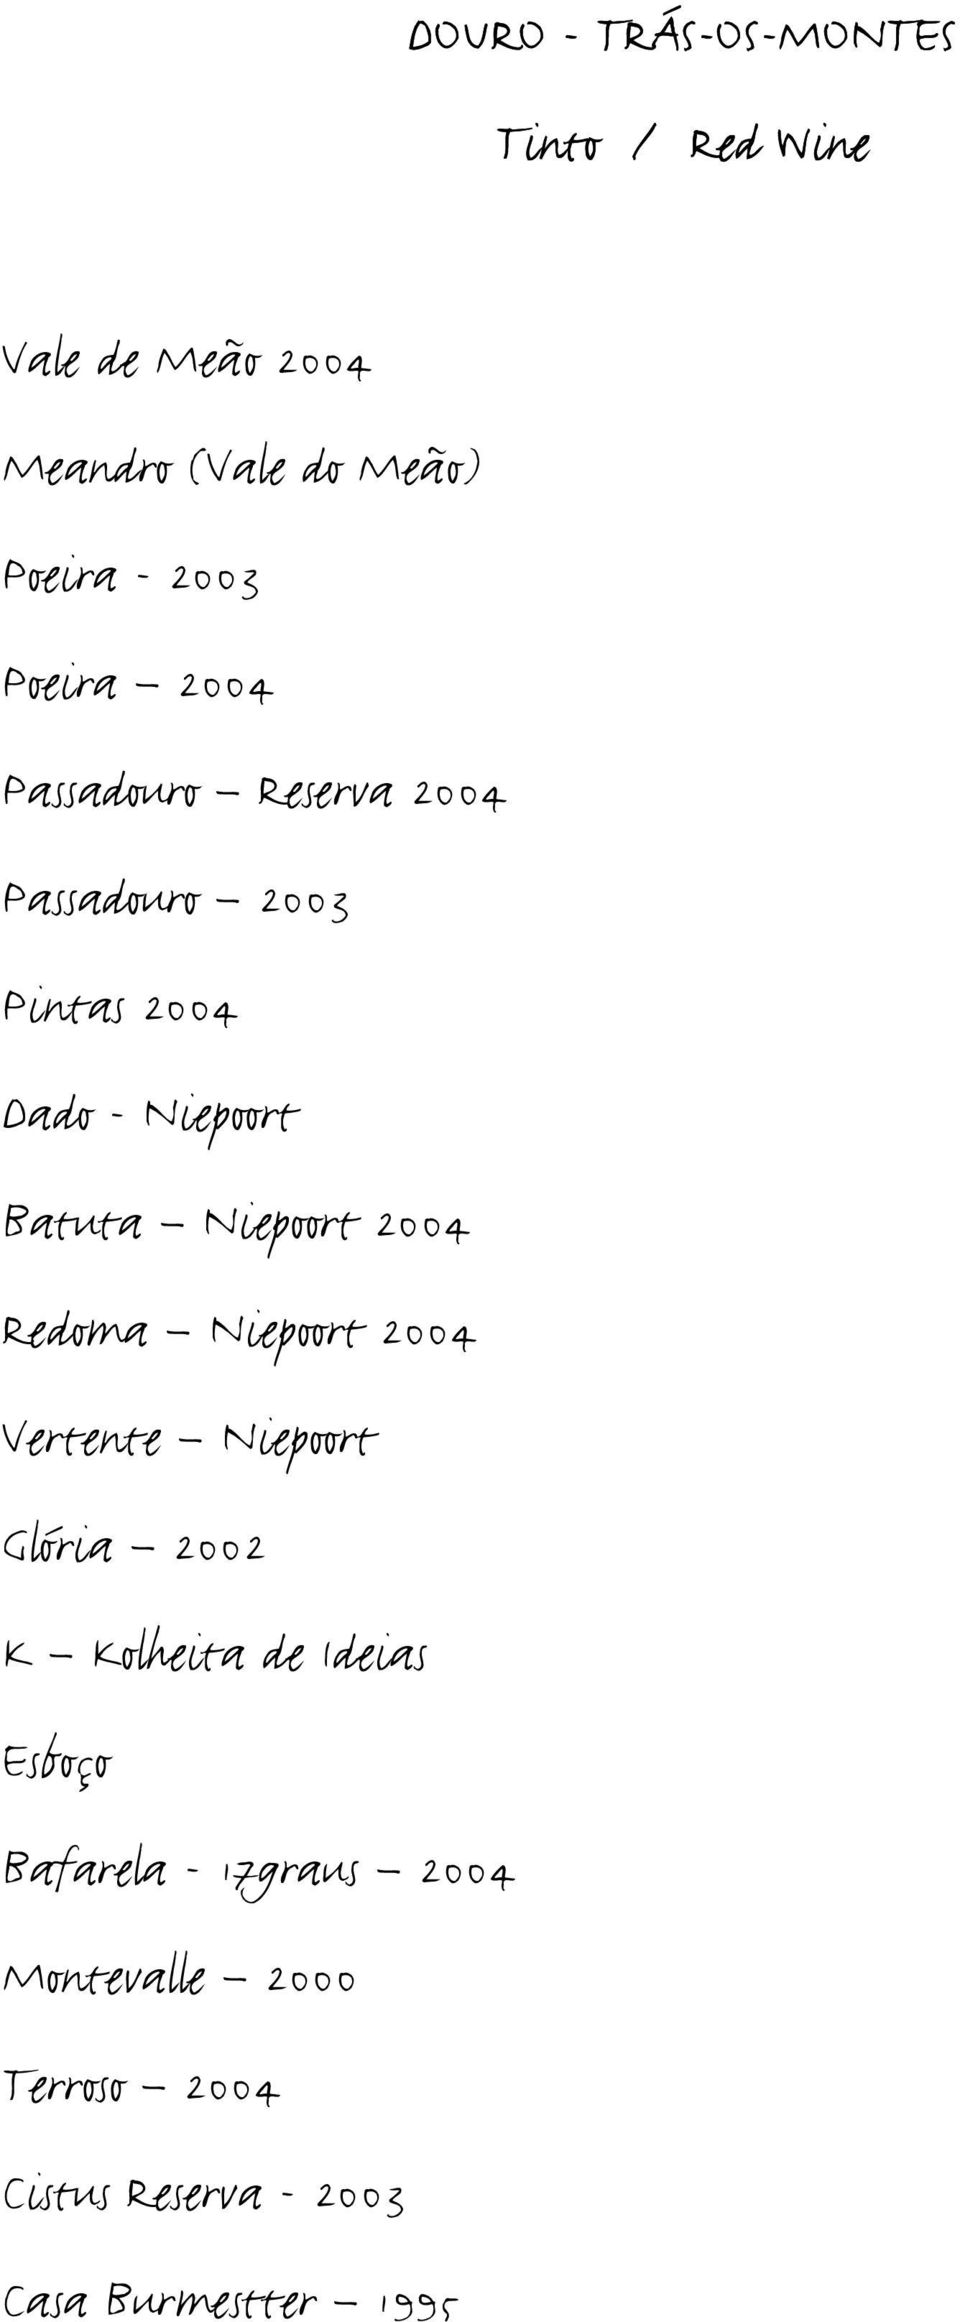 DOURO - TRÁS-OS-MONTES
Tinto / Red Wine
Vale de Meão 2004
Meandro (Vale do Meão)
Poeira - 2003
Poeira – 2004
Passadouro – Reserva 2004
Passadouro – 2003
Pintas 2004
Dado - Niepoort
Batuta – Niepoort 2004
Redoma – Niepoort 2004
Vertente – Niepoort
Glória – 2002
K – Kolheita de Ideias
Esboço
Bafarela - 17graus – 2004
Montevalle – 2000
Terroso – 2004
Cistus Reserva - 2003
Casa Burmestter – 1995